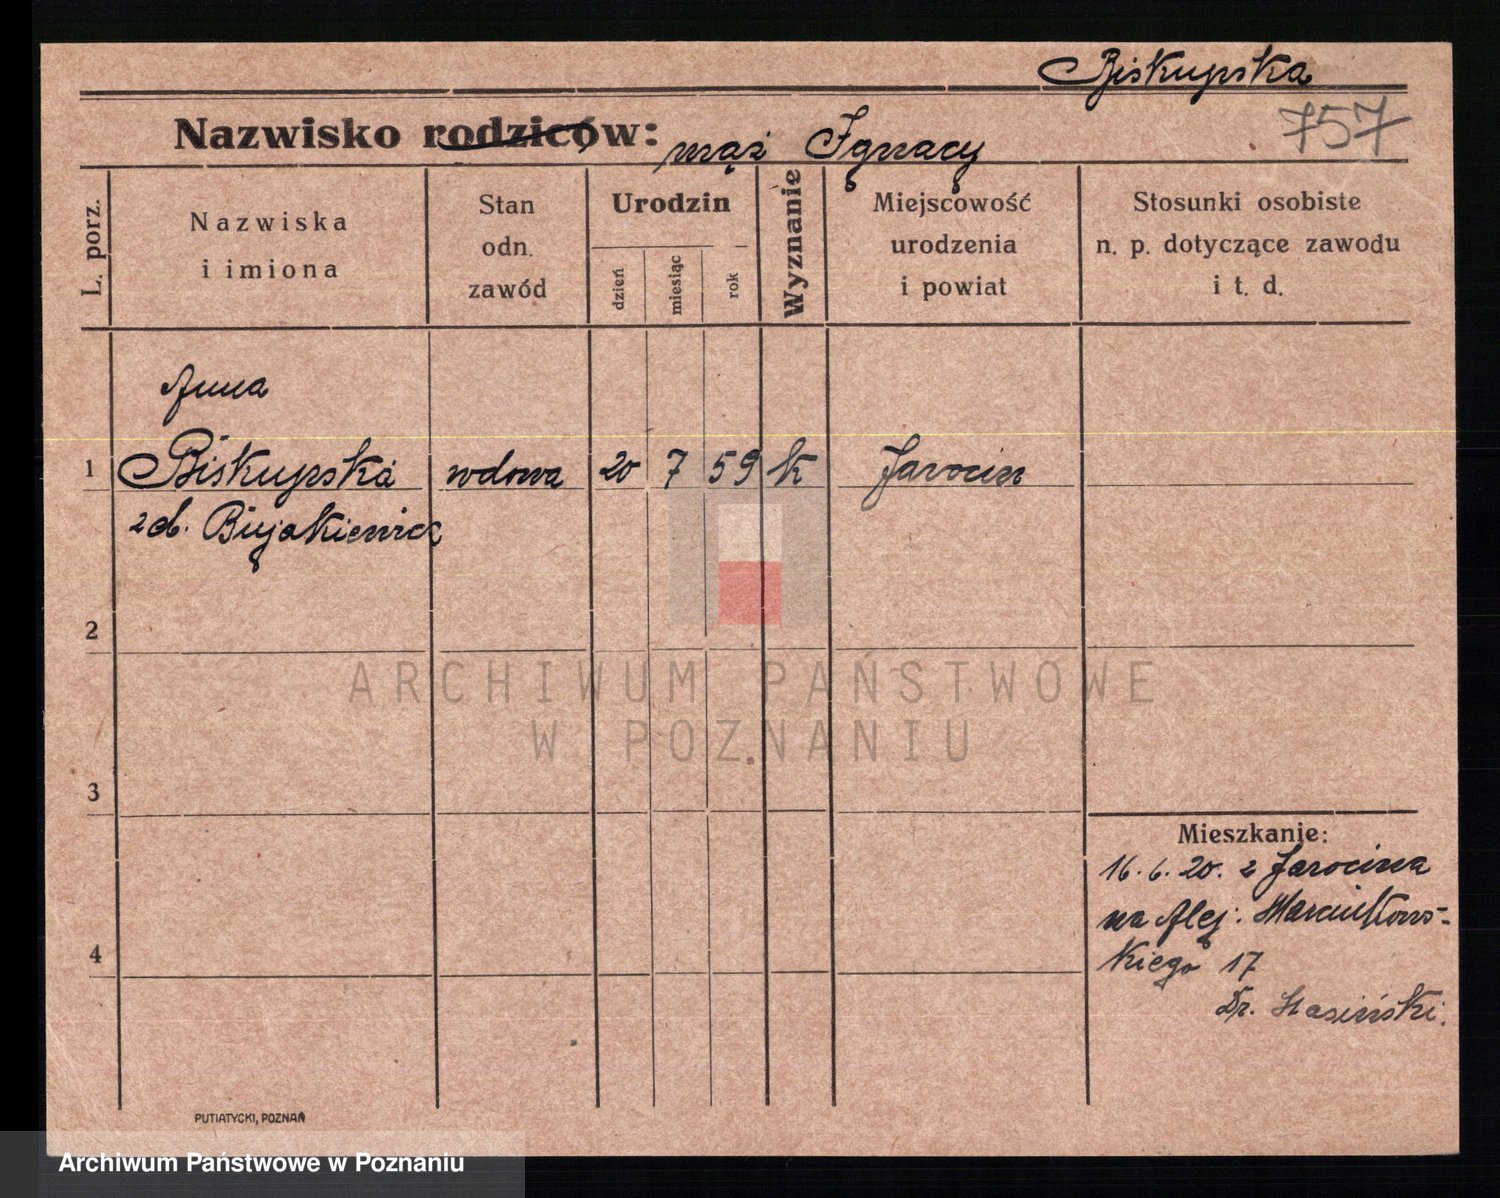 Biskupska
757
Nazwisko rodziców: mąż Ignacy
L. porz.
Nazwiska
i imiona
Stan
odn.
zawód
Urodzin
dzień
miesiąc
rok
Wyznanie
Miejscowość
urodzenia
i powiat
Stosunki osobiste
n. p. dotyczące zawodu
i t. d.
Anna
1 Biskupska wdowa 20 7 59 k Jarocin
z d.
2
ARCHIWUM PAŃSTWOWE
W POZNANIU
3
Mieszkanie:
16. 6. 20. z Jarocina
na Alej: Marcinkows-
4
kiego 17
Dr. Stasiński.
PUTIATYCKI, POZNAŃ
Archiwum Państwowe w Poznaniu